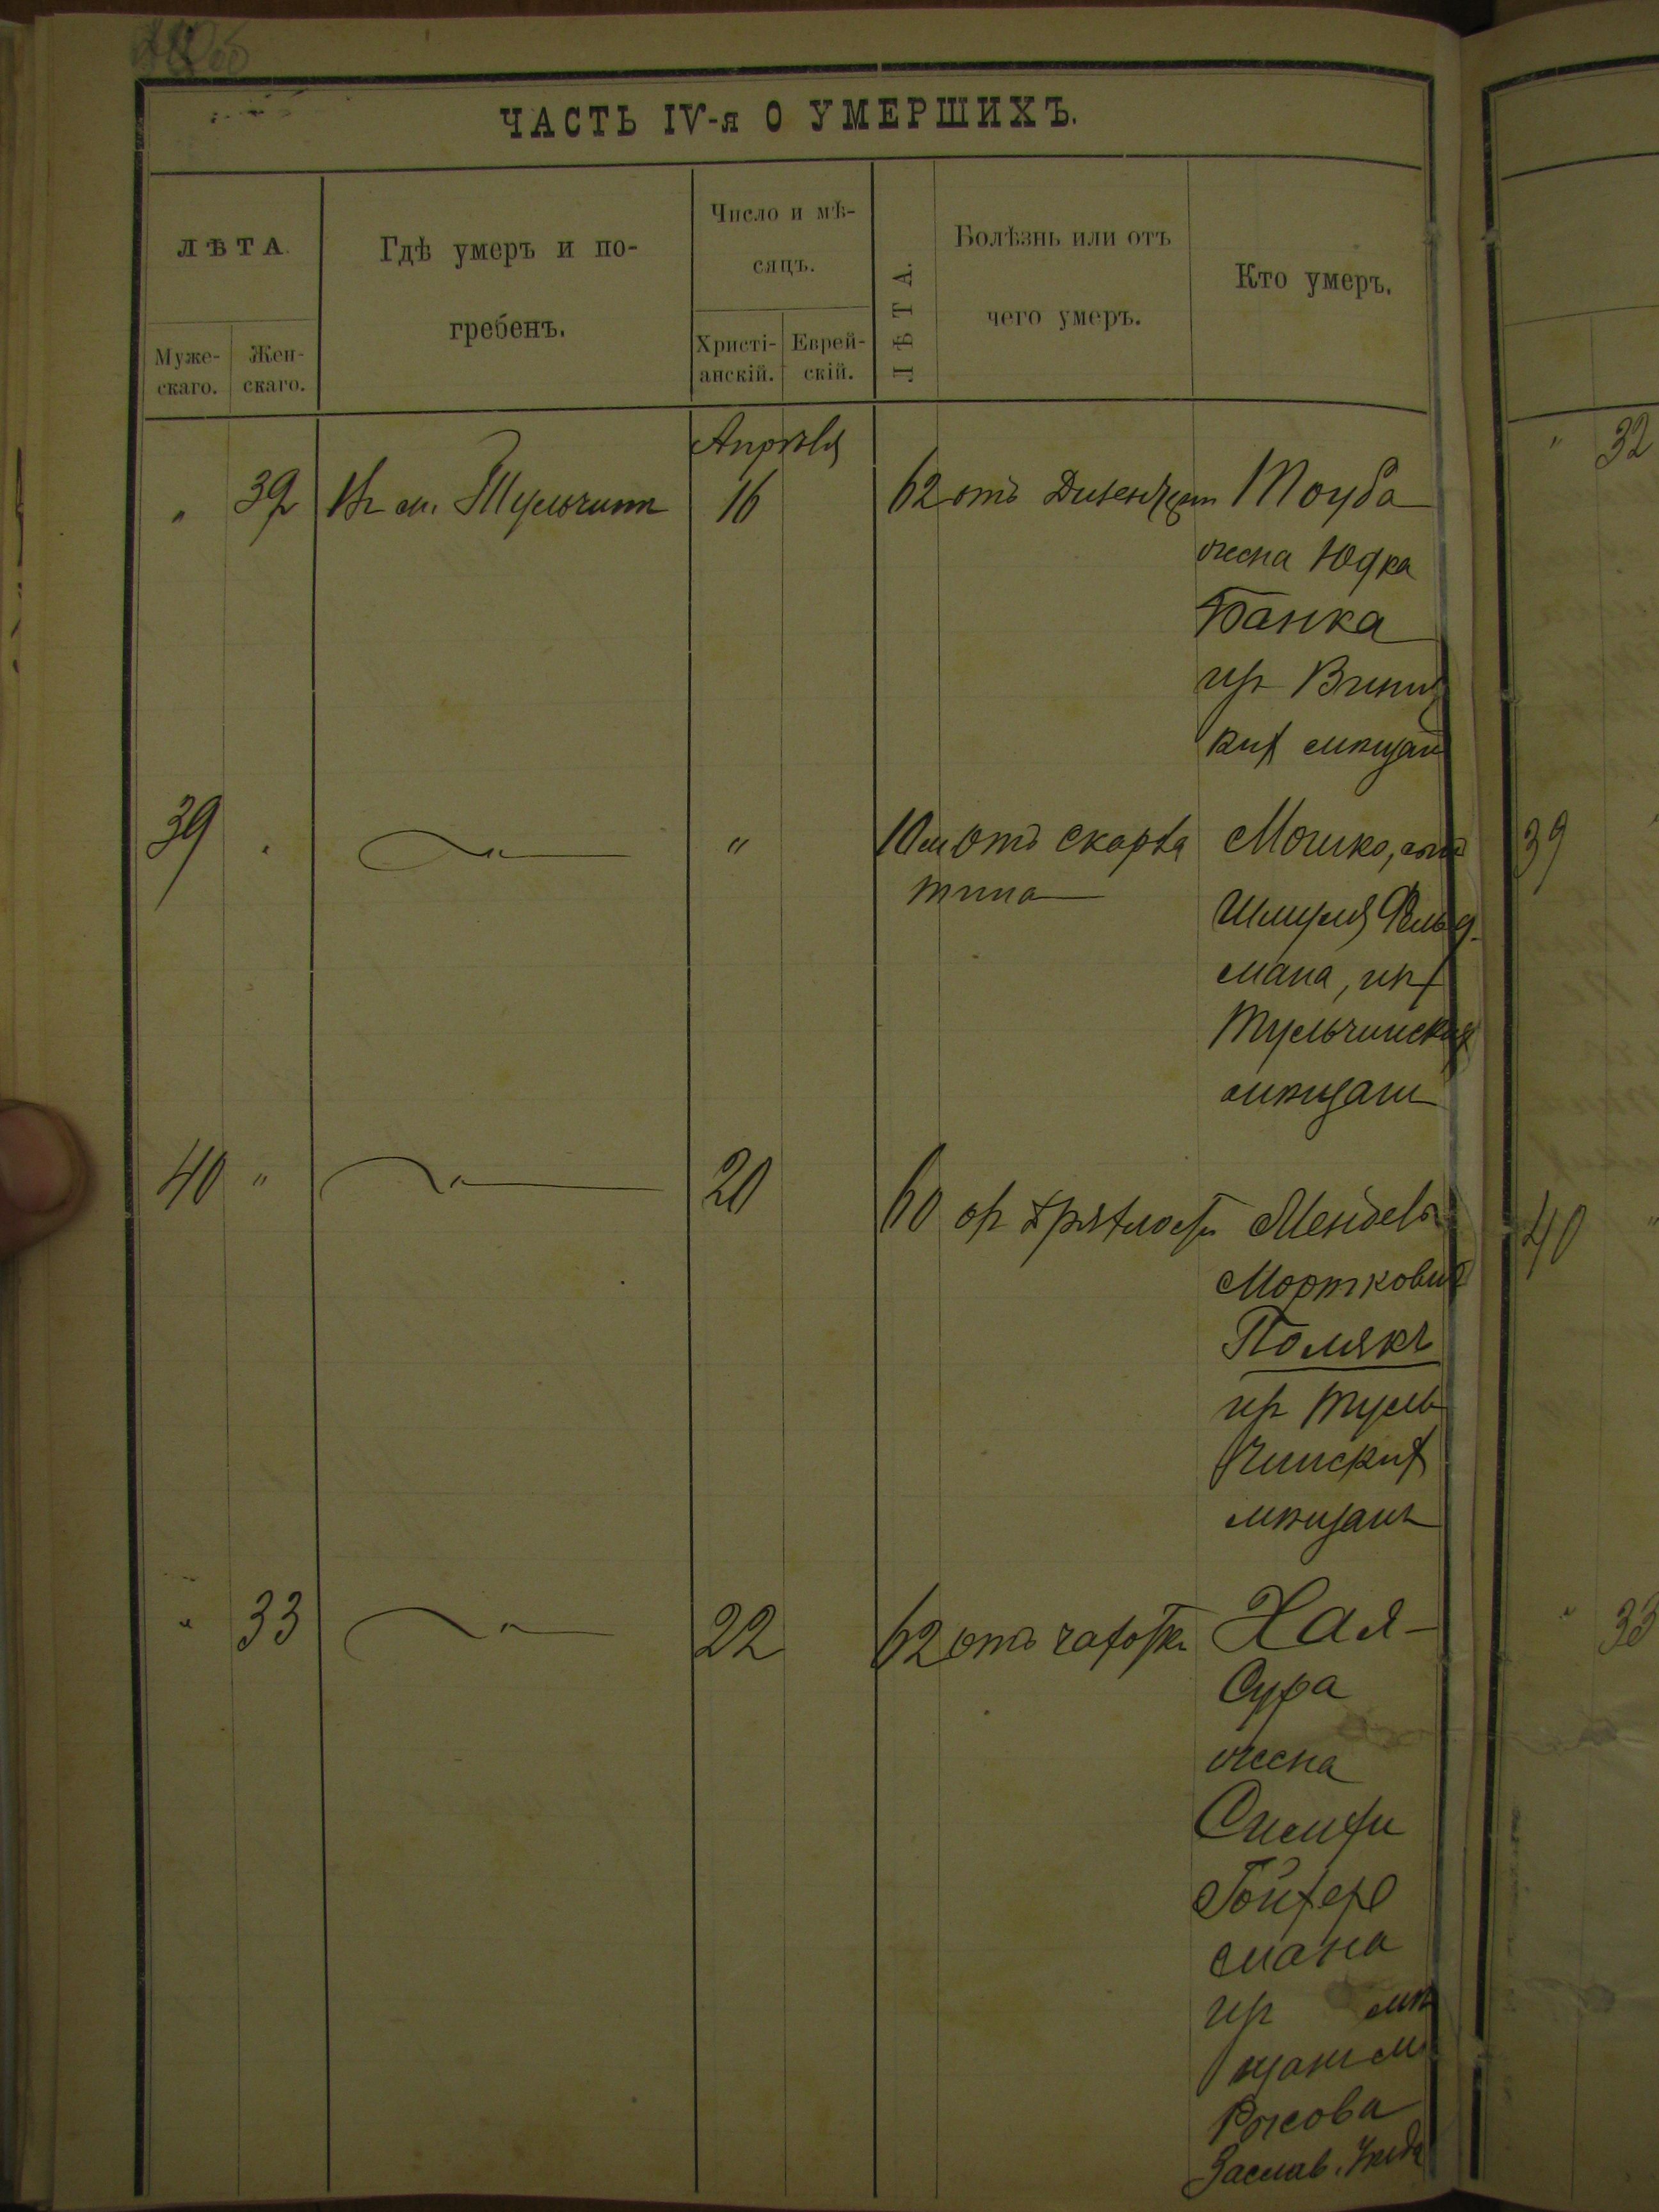 ЧАСТЬ IV-я О УМЕРШИХЪ.
ЛѢТА.
Муже-
скаго.
Жен-
скаго.
Гдѣ умеръ и по-
гребенъ.
Число и мѣ-
сяцъ.
Христі-
анскій.
Еврей-
скій.
ЛѢТА.
Болѣзнь или отъ
чего умеръ.
Кто умеръ.
Апрѣля
" 32 Въ м. Тульчинѣ 16 62 отъ Тоуба
жена Юдка
Банка
изъ Винниц
ких мѣщан
39 " " " 10 м отъ скарла
тина
Мошко, сынъ
Шмуля Фельд-
мана, изъ
Тульчинских
мѣщан
40 " " 20 60 от дряхлости Мендель
Мортковичъ
Полякъ
изъ Туль
чинских
мѣщанъ
" 33 " 22 62 отъ чахотки Хая-
Сура
жена
Симхи
Гойхер
мана
изъ мѣ
щан м
Заслав. Уѣзда
32
39
40
" 33